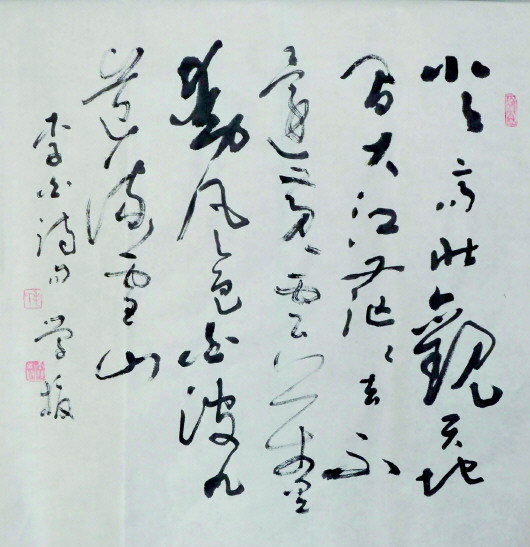 登高壮觀天地
間大江茫茫去不
還黄雲萬里
動風色白波九
道流雪山
李白詩句